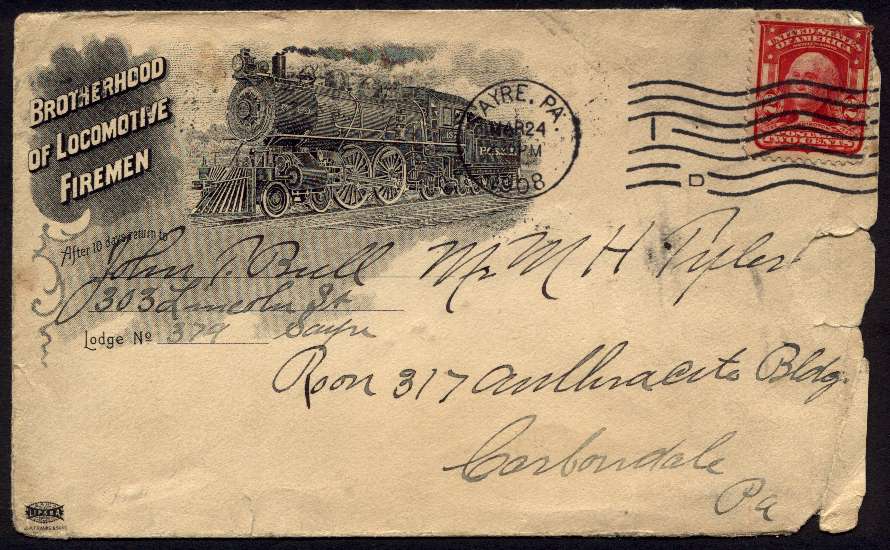 BROTHERHOOD
OF LOCOMOTIVE
FIREMEN
SAYRE, PA.
MAR 24
PM
1908
UNITED STATES
OF AMERICA
POSTAGE
TWO CENTS
D
After 10 days return to
John T. Bull
303 Lincoln St
Lodge No 379 Sayre
Mr M H Tyler
Room 317 Anthracite Bldg.
Carbondale
Pa